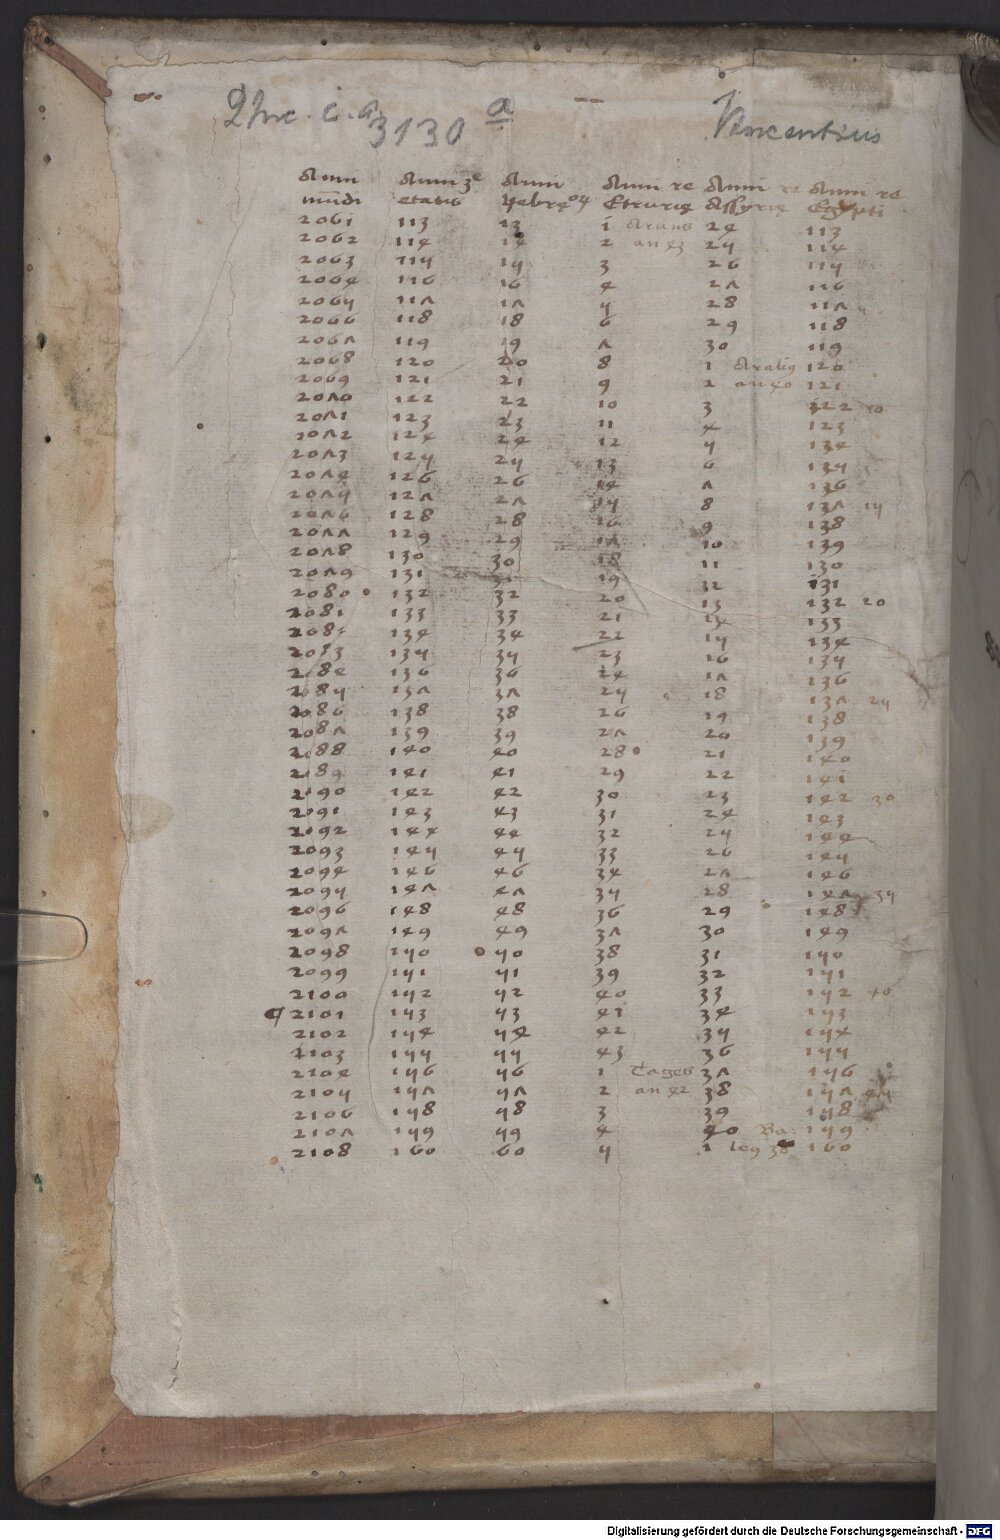 2° Inc. c. a. 3130 a Vincentius
Anni Anni 3e Anni Anni re Anni re Anni re
mūdi etatis Hebręoꝝ Etrurię Assyrię Egypti
2061 113 13 1 Aruns 24 113
2062 114 14 2 an 43 25 114
2063 115 15 3 26 115
2064 116 16 4 27 116
2065 117 17 5 28 117
2066 118 18 6 29 118
2067 119 19 7 30 119
2068 120 20 8 1 Aralig 120
2069 121 21 9 2 an 40 121
2070 122 22 10 3 122 10
2071 123 23 11 4 123
2072 124 24 12 5 134
2073 125 25 13 6 135
2074 126 26 14 7 136
2075 127 27 15 8 137 15
2076 128 28 16 9 138
2077 129 29 17 10 139
2078 130 30 18 11 130
2079 131 31 19 12 131
2080 132 32 20 13 132 20
2081 133 33 21 14 133
2082 134 34 22 15 134
2083 135 35 23 16 135
2084 136 36 24 17 136
2085 137 37 25 18 137 25
2086 138 38 26 19 138
2087 139 39 27 20 139
2088 140 40 28 21 140
2089 141 41 29 22 141
2090 142 42 30 23 142 30
2091 143 43 31 24 143
2092 144 44 32 25 144
2093 145 45 33 26 145
2094 146 46 34 27 146
2095 147 47 35 28 147 35
2096 148 48 36 29 148
2097 149 49 37 30 149
2098 150 50 38 31 150
2099 151 51 39 32 151
2100 152 52 40 33 152 40
2101 153 53 41 34 153
2102 154 54 42 35 154
2103 155 55 43 36 155
2104 156 56 1 Tages 37 156
2105 157 57 2 an 42 38 157 45
2106 158 58 3 39 158
2107 159 59 4 40 Ba: 159
2108 160 60 5 1 leg 38 160
Digitalisierung gefördert durch die Deutsche Forschungsgemeinschaft - DFG